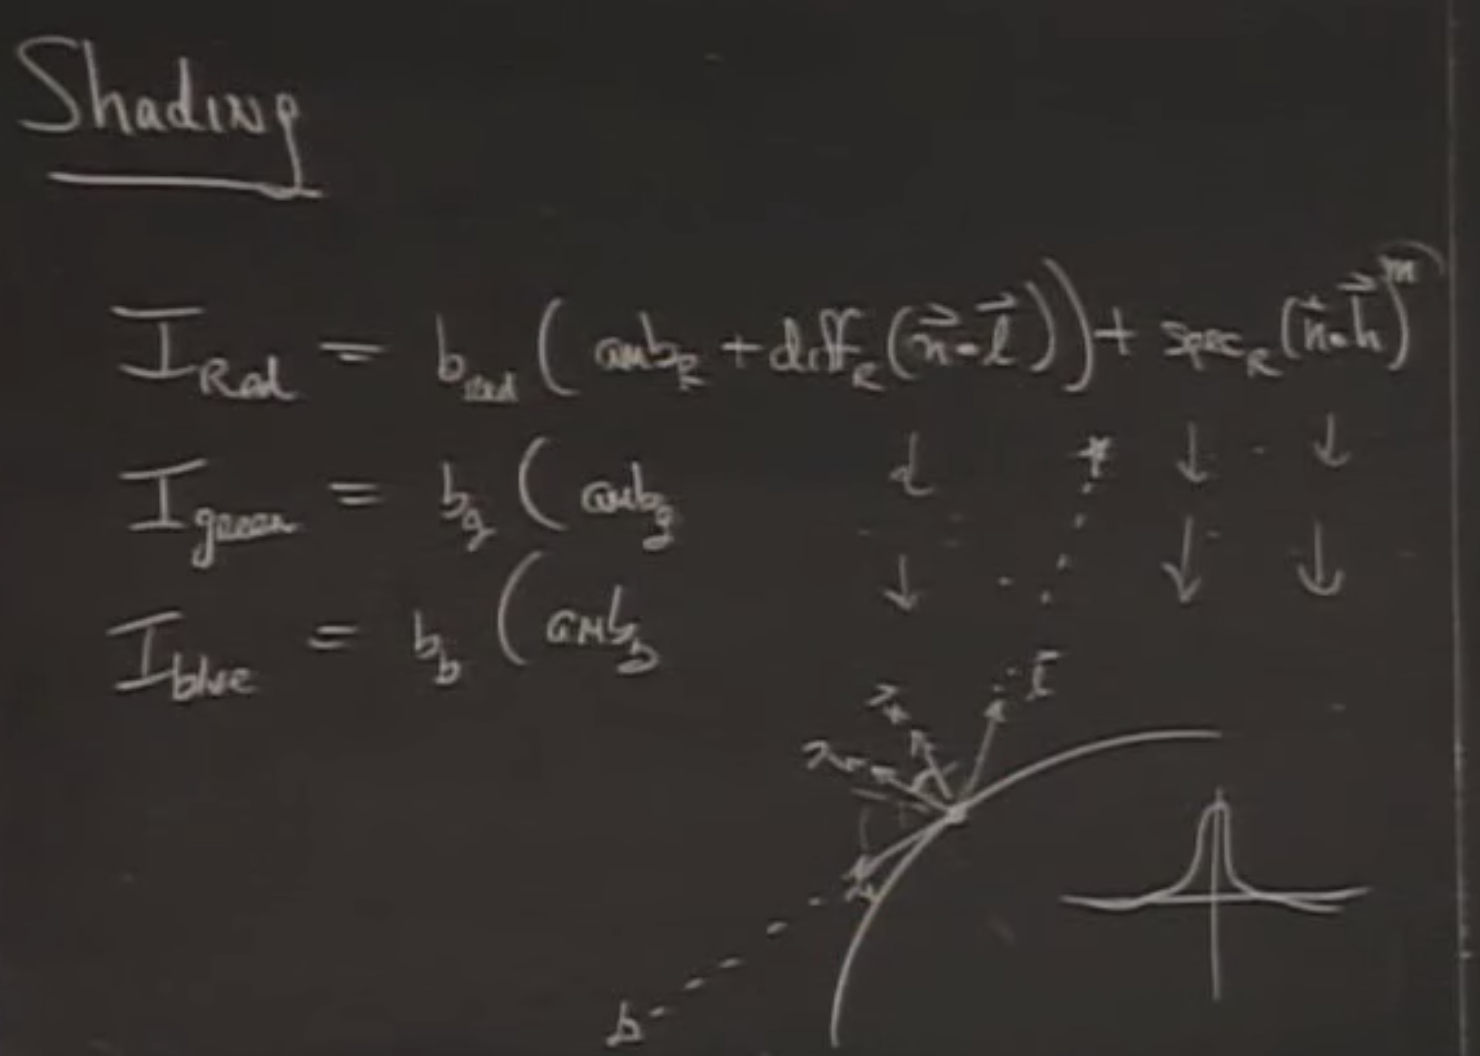 Shading
I_Red = b_red ( amb_R + diff_R (n⃗ · l⃗) ) + spec_R (n⃗ · h⃗)^m
I_green = b_g ( amb_g ↓ ↓ ↓
I_blue = b_b ( amb_b ↓ ↓ ↓
l⃗
n⃗
r⃗